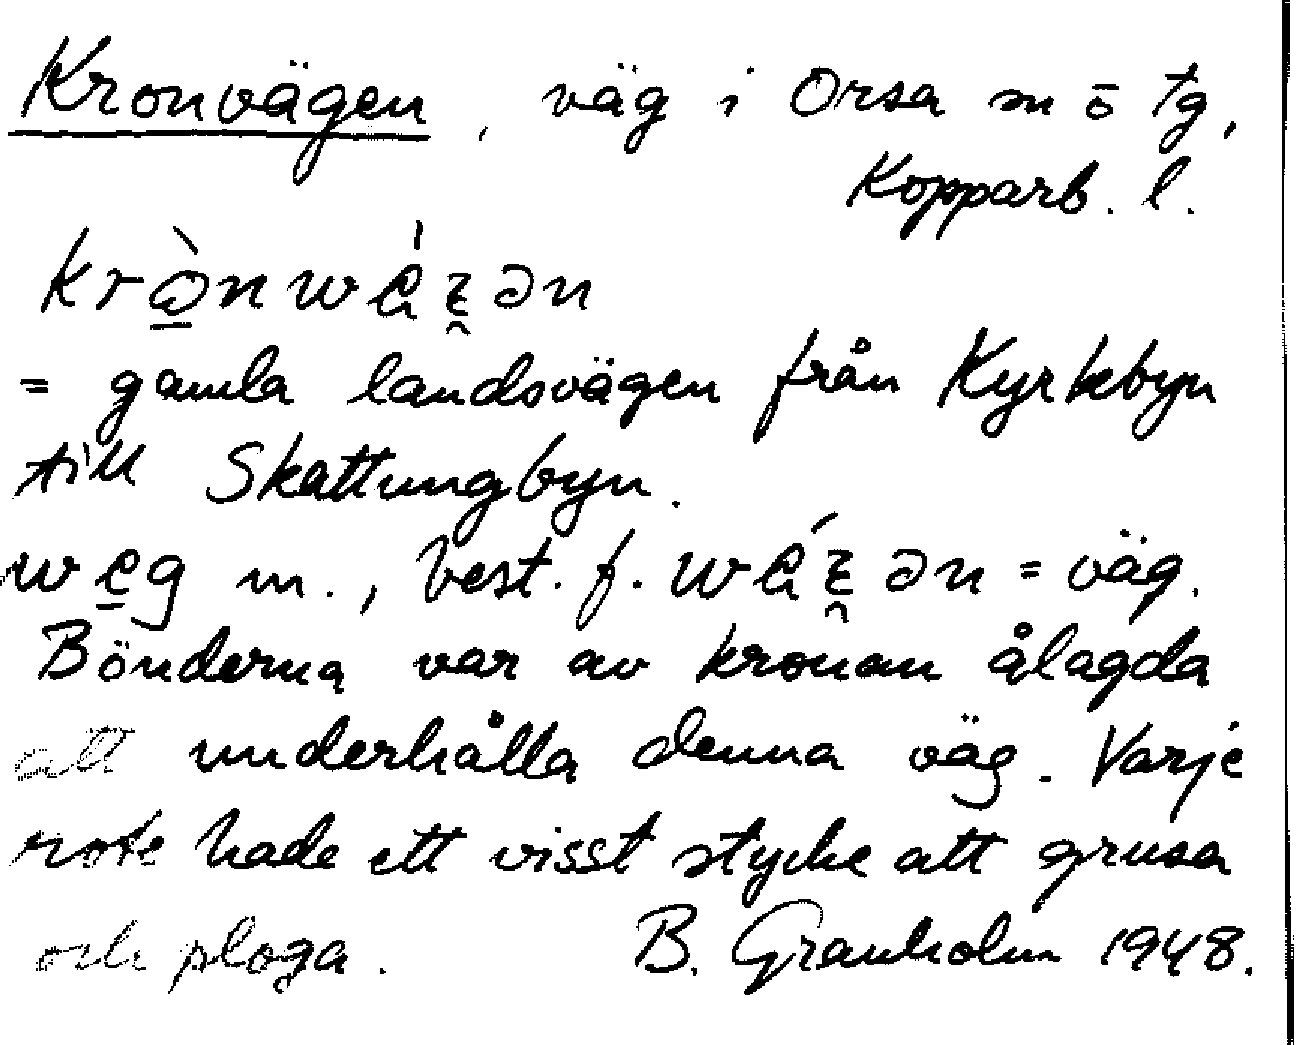 Kronvägen, väg i Orsa sn ö tg,
Kopparb. l.
= gamla landsvägen från Kyrkbyn
till Skattungbyn.
m., best. f. = väg.
Bönderna var av kronan ålagda
att underhålla denna väg. Varje
rote hade ett visst stycke att grusa
och ploga. B. Granholm 1948.